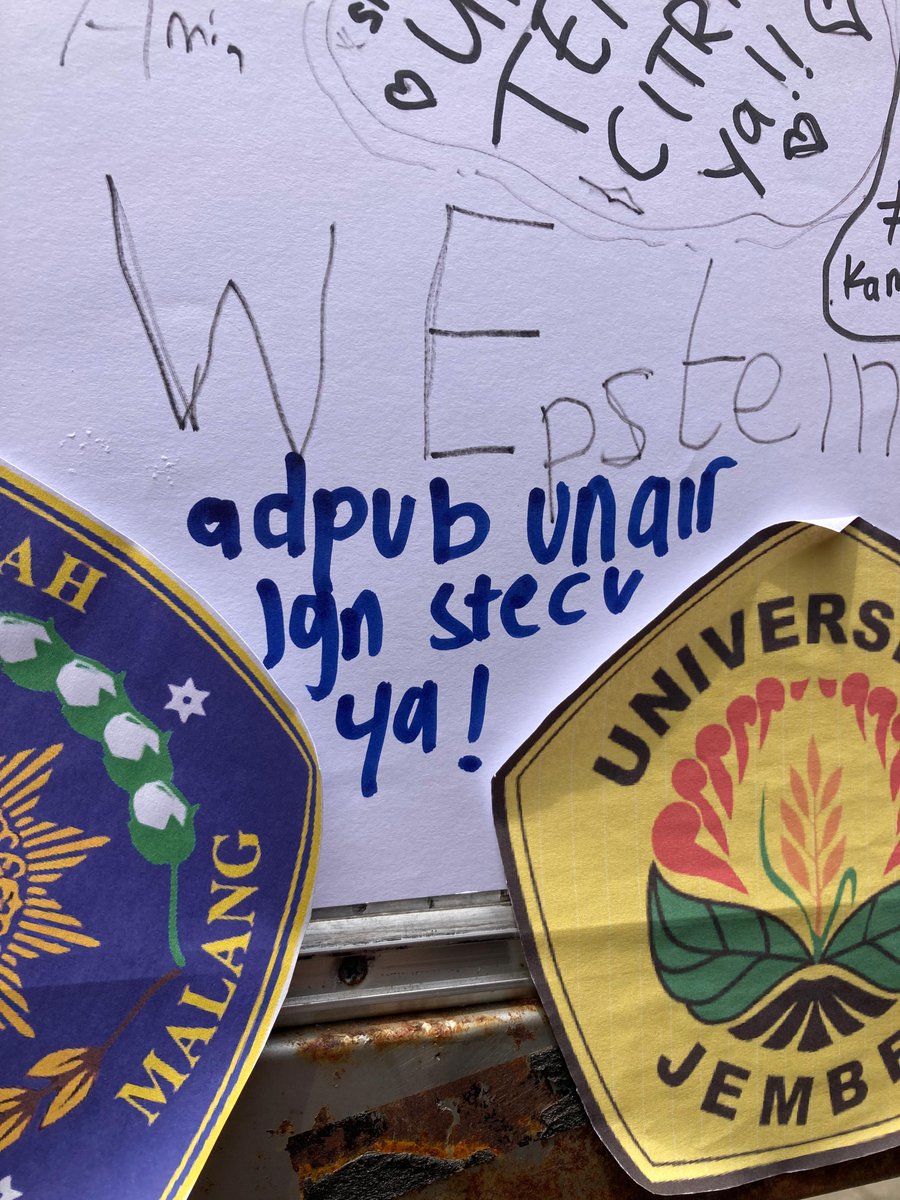 Ami,
CITR
ya!!
Kam
W Epstein
adpub unair
jgn stecu
ya!
AH
MALANG
UNIVERSI
JEMBE